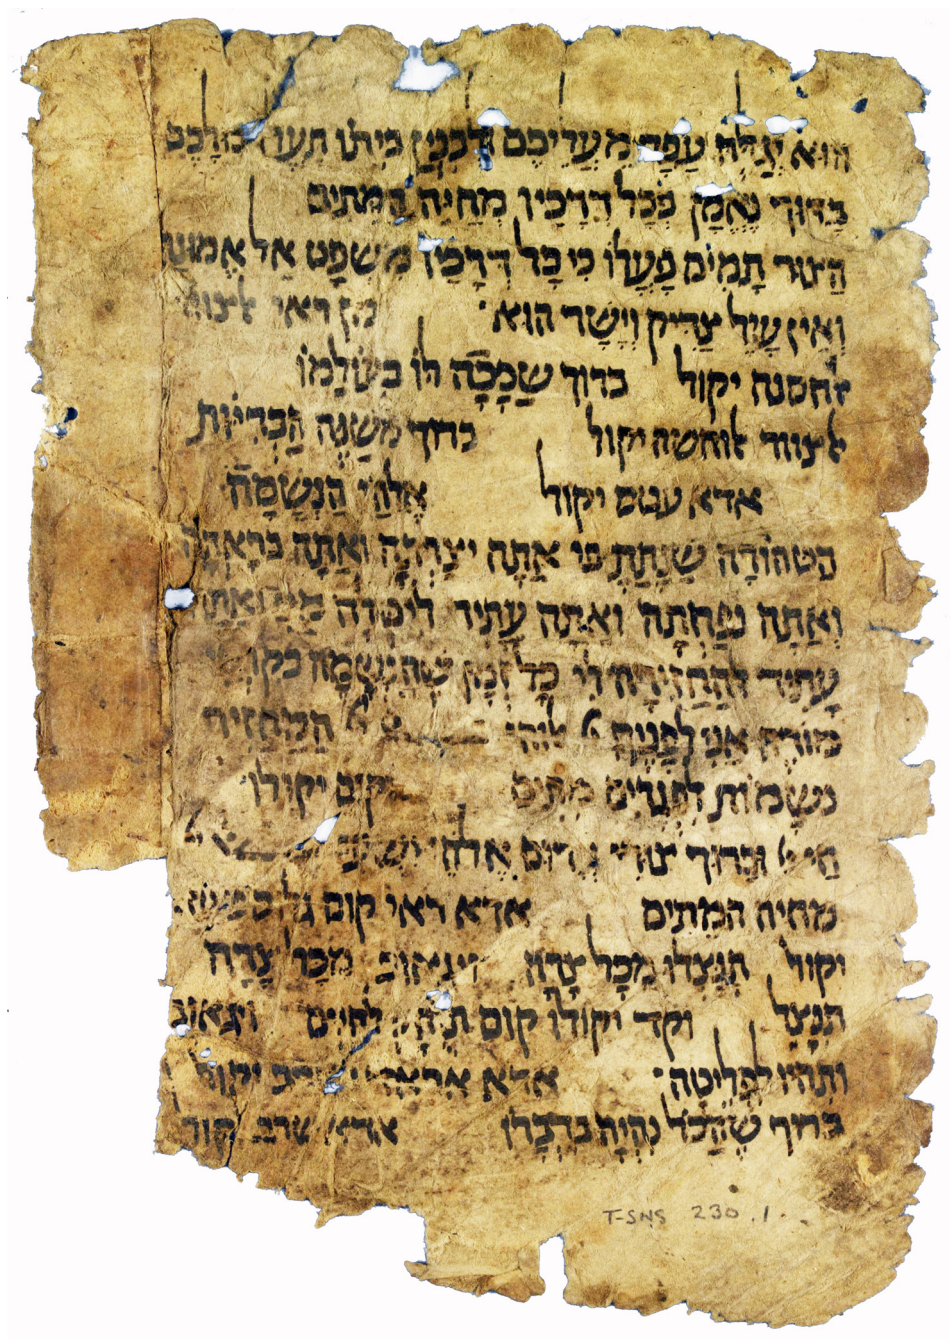 הוּא יְגַלֶּה עֲפַר מֵעֲרֵיכֶם
בָּרוּךְ נֶאֱמָן בְּכָל דְּרָכָיו מְחַיֵּה הַמֵּתִים
הַצּוּר תָּמִים פָּעֳלוֹ כִּי כָל דְּרָכָיו מִשְׁפָּט אֵל אֱמוּנָה
וְאֵין עָוֶל צַדִּיק וְיָשָׁר הוּא מן ראי לצורה
לחסנה יקול ברוך שֶׁכָּכָה לוֹ בְּעוֹלָמוֹ
לצורה לוחשה יקול ברוך מְשַׁנֶּה הַבְּרִיּוֹת
אדא עטס יקול אֱלֹהַי הַנְּשָׁמָה
הַטְּהוֹרָה שֶׁנָּתַתָּ בִּי אַתָּה יְצַרְתָּהּ וְאַתָּה בְּרָאתָהּ
וְאַתָּה נְפַחְתָּהּ וְאַתָּה עָתִיד לִיטְּלָהּ מִמֶּנִּי וְאַתָּה
עָתִיד לְהַחֲזִירָהּ לִי כָּל זְמַן שֶׁהַנְּשָׁמָה בְּקִרְבִּי
מוֹדֶה אֲנִי לְפָנֶיךָ הַמַּחֲזִיר
נְשָׁמוֹת לִפְגָרִים מֵתִים קום יקולו
חַי וּבָרוּךְ צוּרִי וְיָרוּם אֱלֹהֵי יִשְׁעִי
מחיה המתים אדא ראי קום
יקול תִּנָּצְלוּ מִכָּל צָרָה ויגאוב מִכָּל צָרָה
תִּנָּצֵל וקד יקולו קום לְחַיִּים ויגאוב
וְתִהְיוּ לִפְלֵיטָה אדא יקול
בָּרוּךְ שֶׁהַכֹּל נִהְיָה בִדְבָרוֹ אדא שרב יקול
T-S NS 230.1